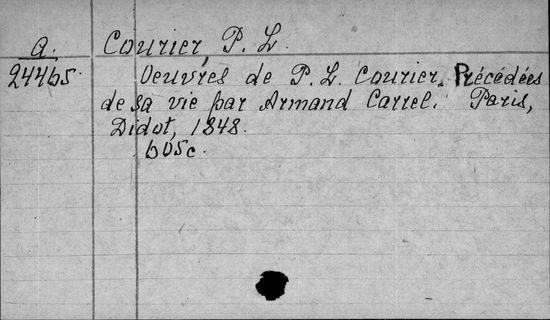 a. Courier, P. L.
24465. Oeuvres de P. L. Courier. Précédées
de sa vie par Armand Carrel. Paris,
Didot, 1848.
605c.